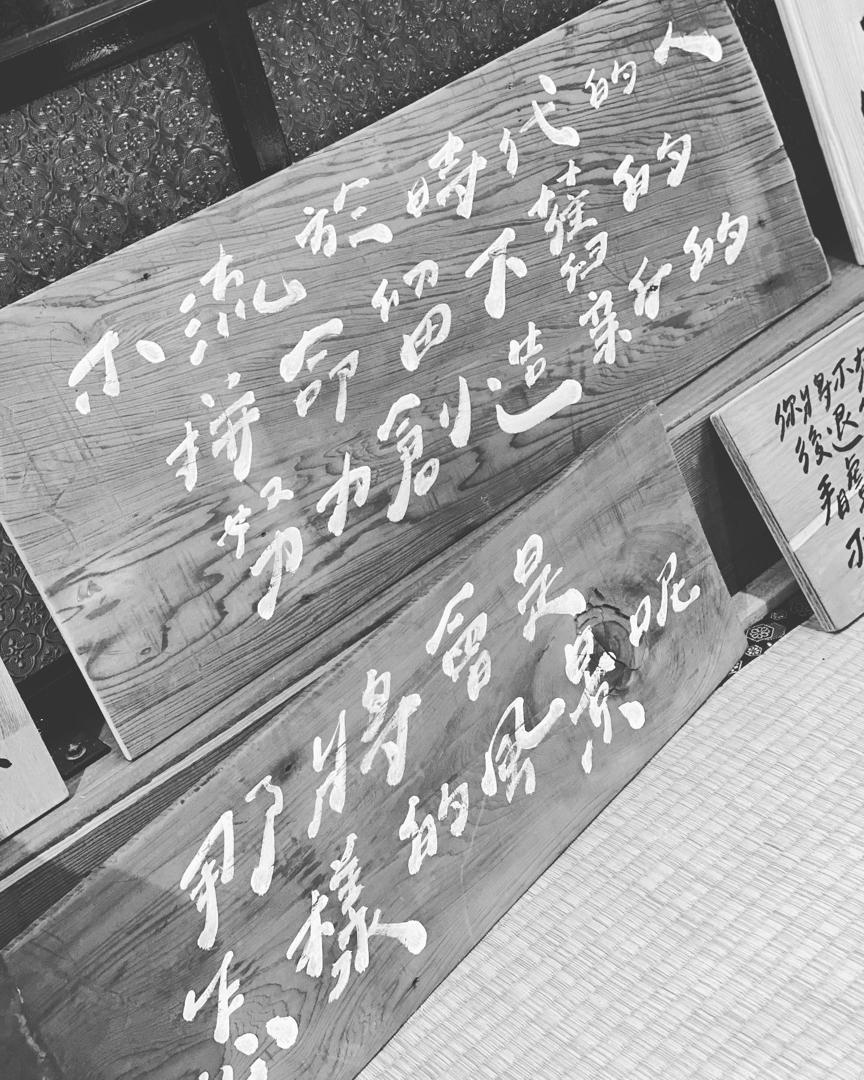 不流於時代的人
拼命留下舊的
努力創造新的
那將會是
怎樣的風景呢
你將不
後退
看